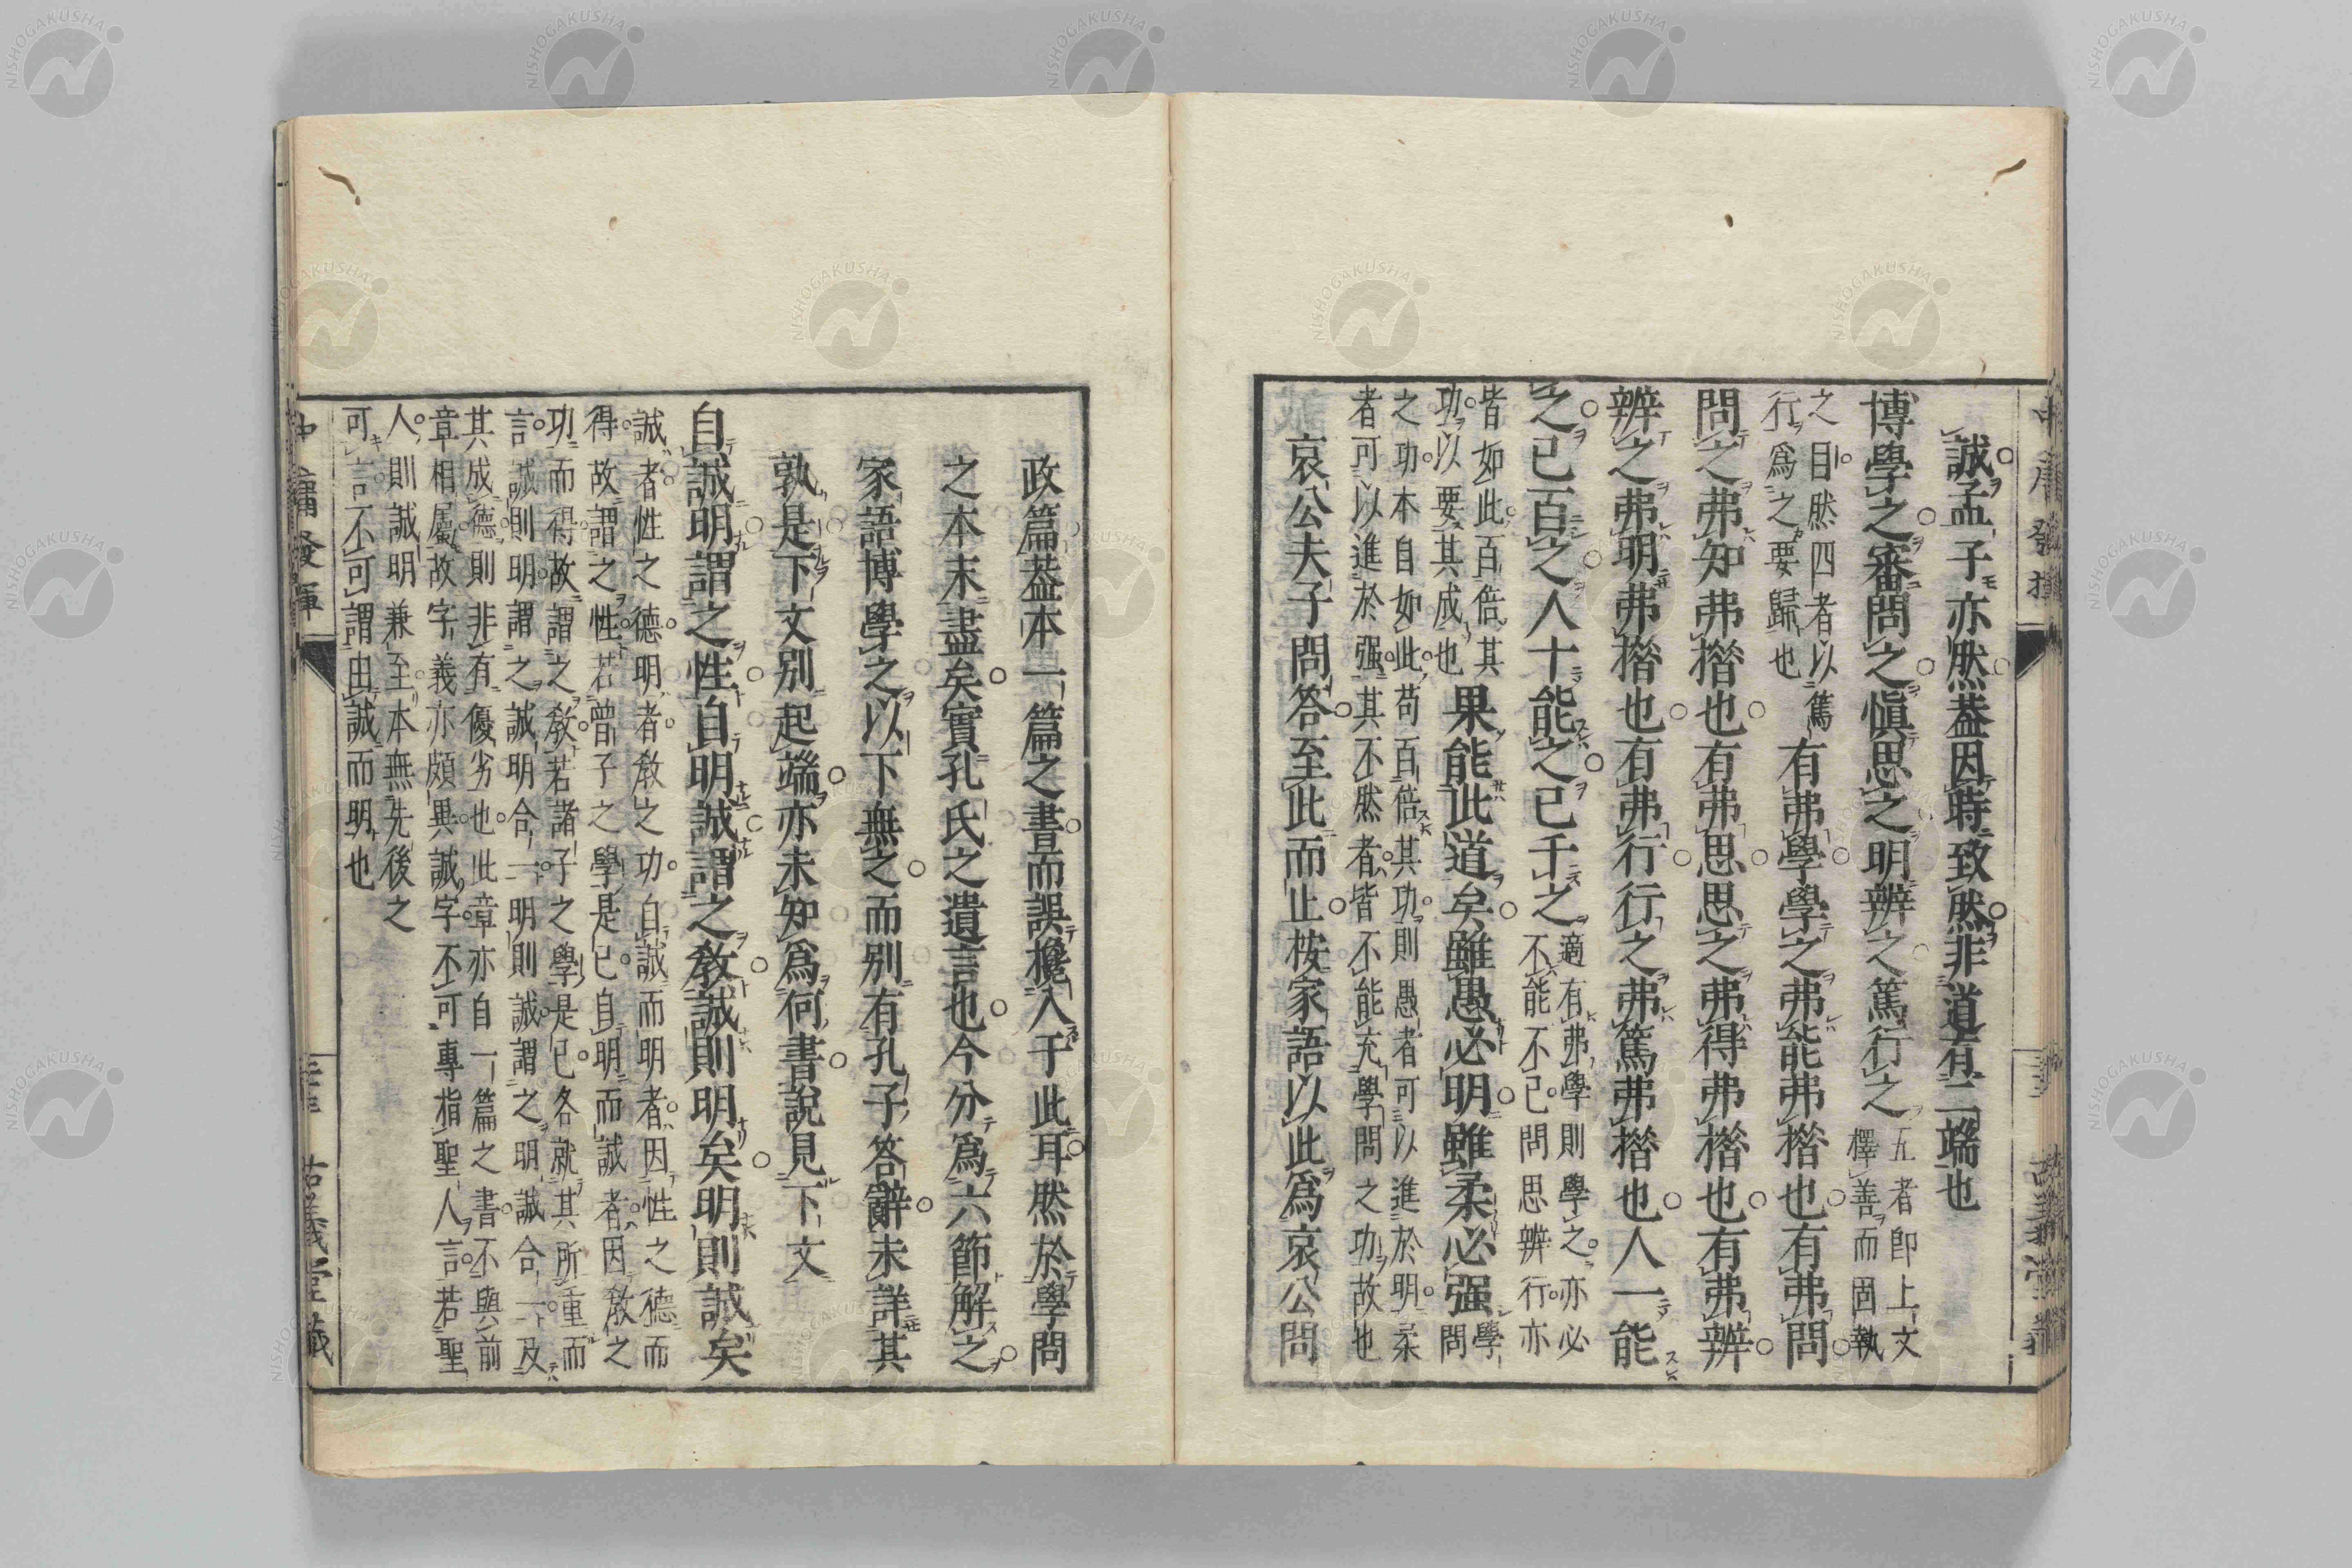 誠孟子亦然蓋因時致然非道有二端也
博學之審問之愼思之明辨之篤行之五者即上文
擇善而固執
之目然四者以篤
行爲之要歸也有弗學學之弗能弗措也有弗問
問之弗知弗措也有弗思思之弗得弗措也有弗辨
辨之弗明弗措也有弗行行之弗篤弗措也人一能
之己百之人十能之己千之適有弗學則學之亦必
不能不已問思辨行亦
皆如此百倍其
功以要其成也果能此道矣雖愚必明雖柔必强學
問
之功本自如此苟百倍其功則愚者可以進於明柔
者可以進於强其不然者皆不能充學問之功故也
哀公夫子問答至此而止桉家語以此爲哀公問
政篇蓋本一篇之書而誤欃入于此耳然於學問
之本末盡矣實孔氏之遺言也今分爲六節解之
家語博學之以下無之而別有孔子答辭未詳其
孰是下文別起端亦未知爲何書說見下文
自誠明謂之性自明誠謂之敎誠則明矣明則誠矣
誠者性之德明者敎之功自誠而明者因性之德而
得故謂之性若曾子之學是已自明而誠者因敎之
功而得故謂之敎若諸子之學是已各就其所重而
言誠則明謂之誠明合一明則誠謂之明誠合一及
其成德則非有優劣也此章亦自一篇之書不與前
章相屬故字義亦頗異誠字不可專指聖人言若聖
人則誠明兼至本無先後之
可言不可謂由誠而明也
中庸發揮
古義堂藏
NISHOGAKUSHA